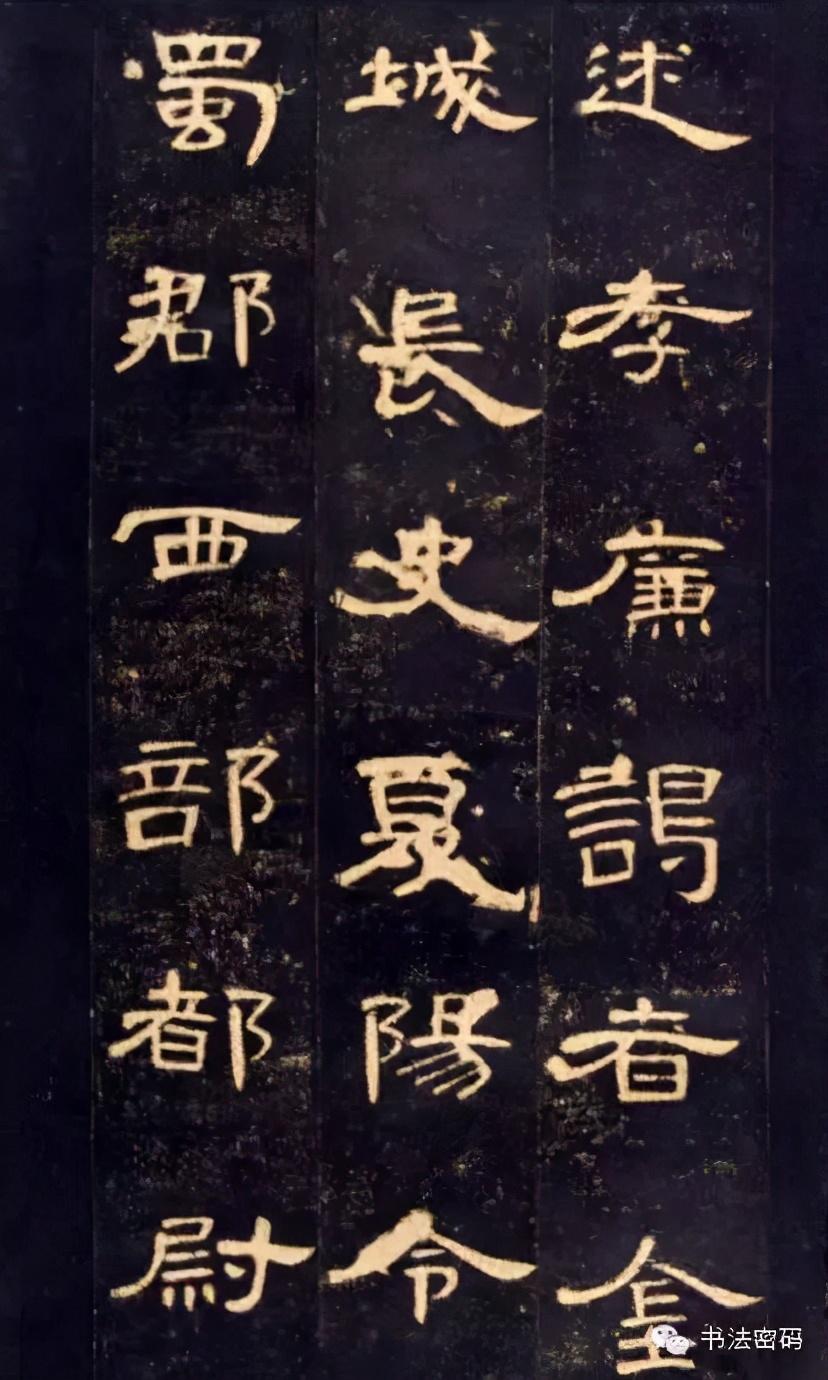 述孝廉謁者金
城長史夏陽令
蜀郡西部都尉
书法密码